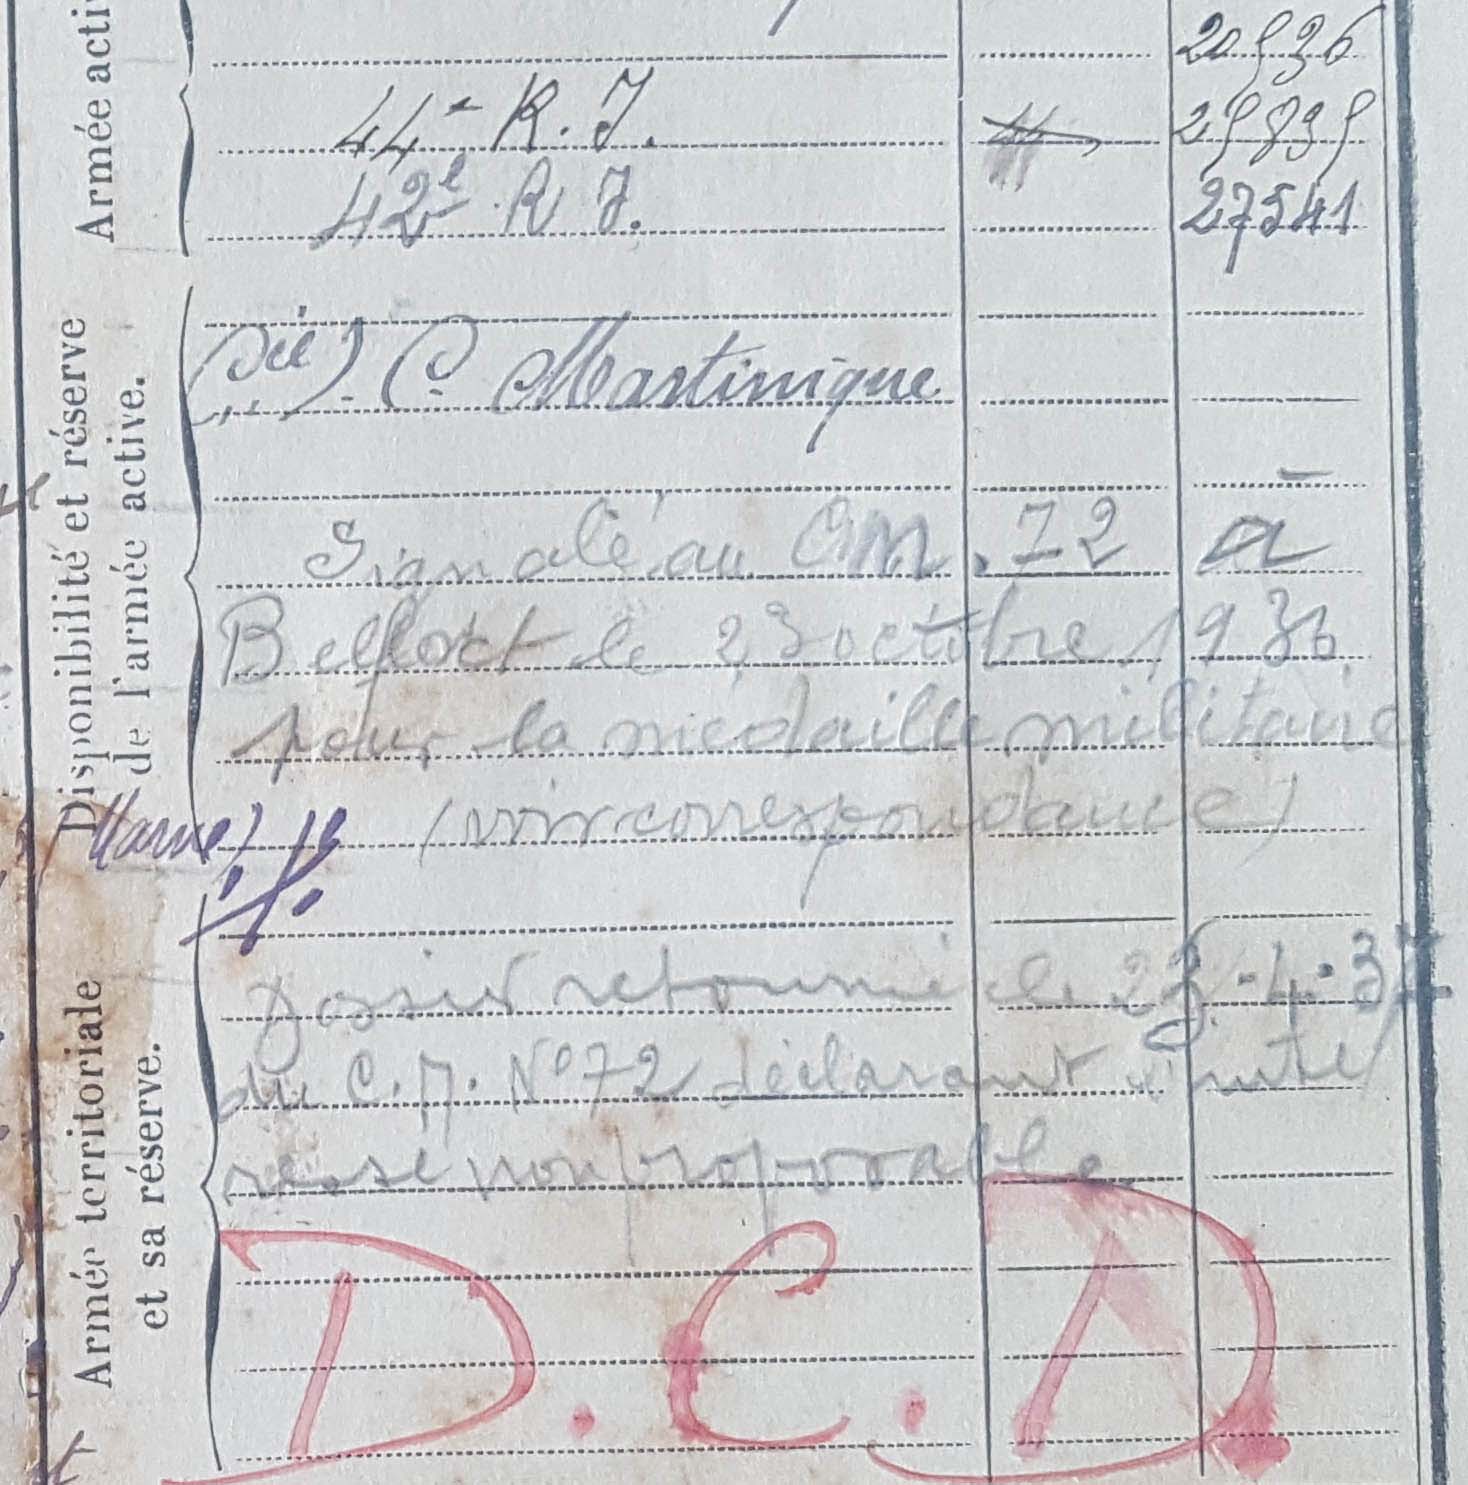 Armée acti
20536
44e R. I.
25835
42e R I.
27541
Disponibilité et réserve
de l'armée active.
Cie Martinique
Signalé au CM. 72 à
Belfort le 23 octobre 1936
pour la médaille militaire
(voir correspondance)
Marne)
Armée territoriale
et sa réserve.
Dossier retourné le 23-4-37
du C.M. N° 72 déclarant l'inté
ressé non proposable
D.C.D